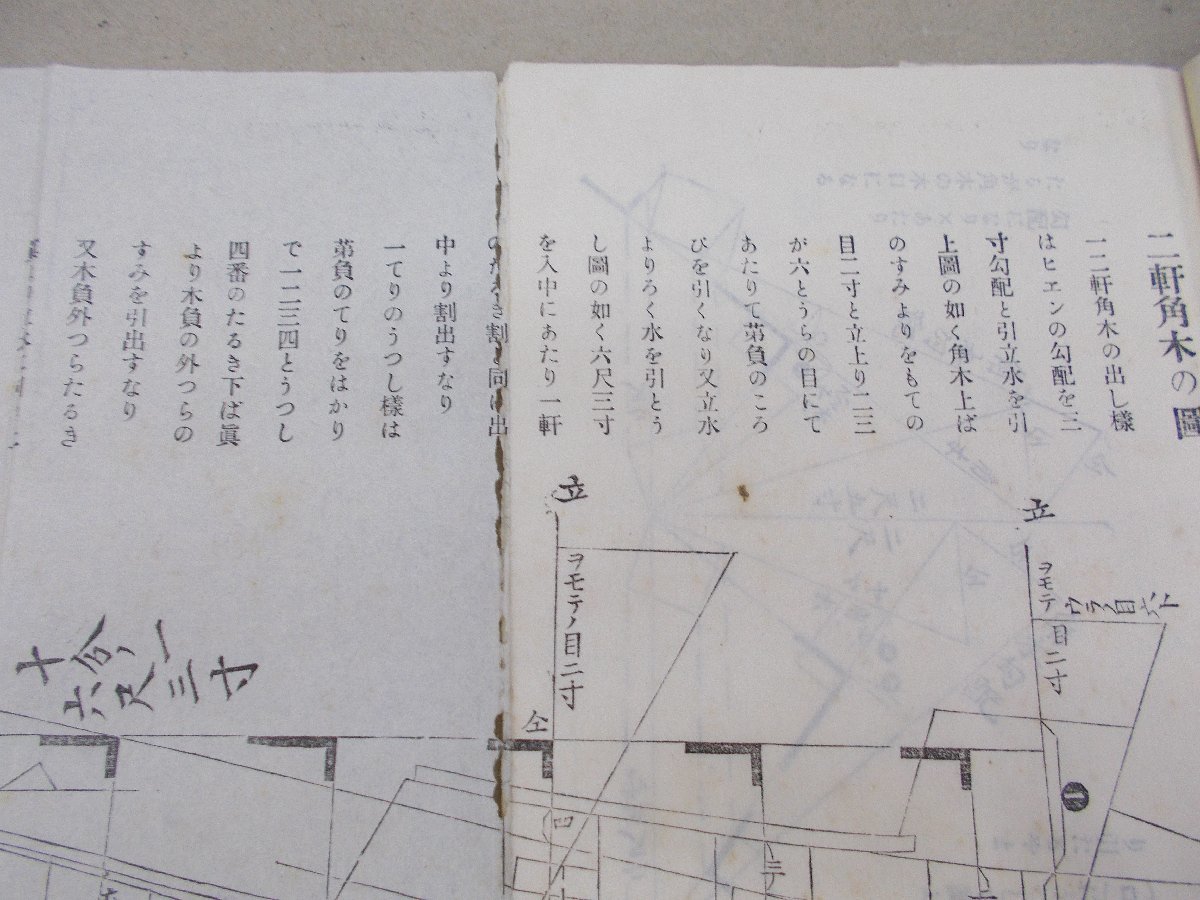 二軒角木の圖
一二軒角木の出し樣
はヒエンの勾配を三
寸勾配と引立水を引
上圖の如く角木上ば
のすみよりをもての
目二寸と立上り二三
が六とうらの目にて
あたりて茀負のころ
びを引くなり又立水
よりろく水を引とう
し圖の如く六尺三寸
を入中にあたり一軒
のたるき割り同じ出
中より割出すなり
一てりのうつし樣は
茀負のてりをはかり
で一二三四とうつし
四番のたるき下ば眞
より木負の外つらの
すみを引出すなり
又木負外つらたるき
立
ヲモテ目二寸
ウラノ目六ト
一
立
ヲモテノ目二寸
仝
四
三テ
二
六尺三寸